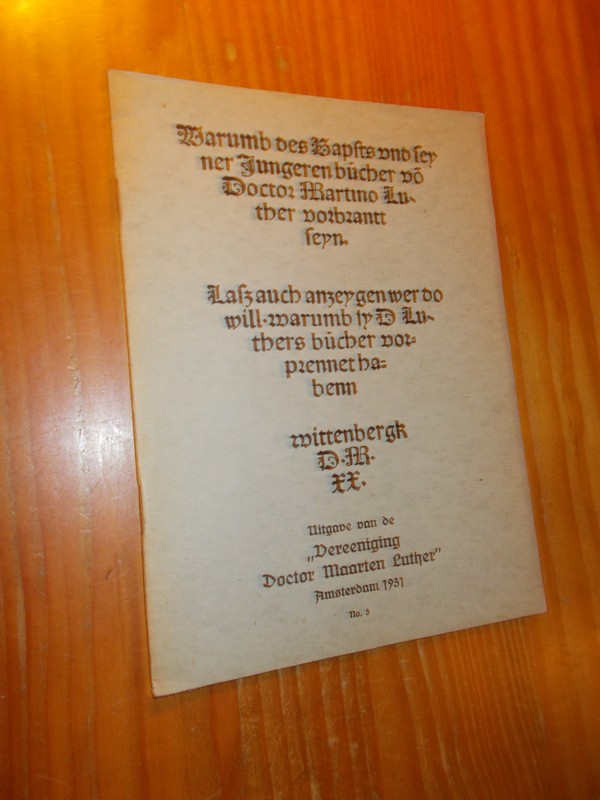 Warumb des Bapsts vnd ſey
ner Jungeren bücher võ
Doctor Martino Lu-
ther vorbrantt
ſeyn.
Laſz auch anzeygen wer do
will. warumb ſy D Lu-
thers bücher vor=
prennet ha=
benn
wittenbergk
D.M.
XX.
Uitgave van de
„Vereeniging
Doctor Maarten Luther”
Amsterdam 1931
No. 3